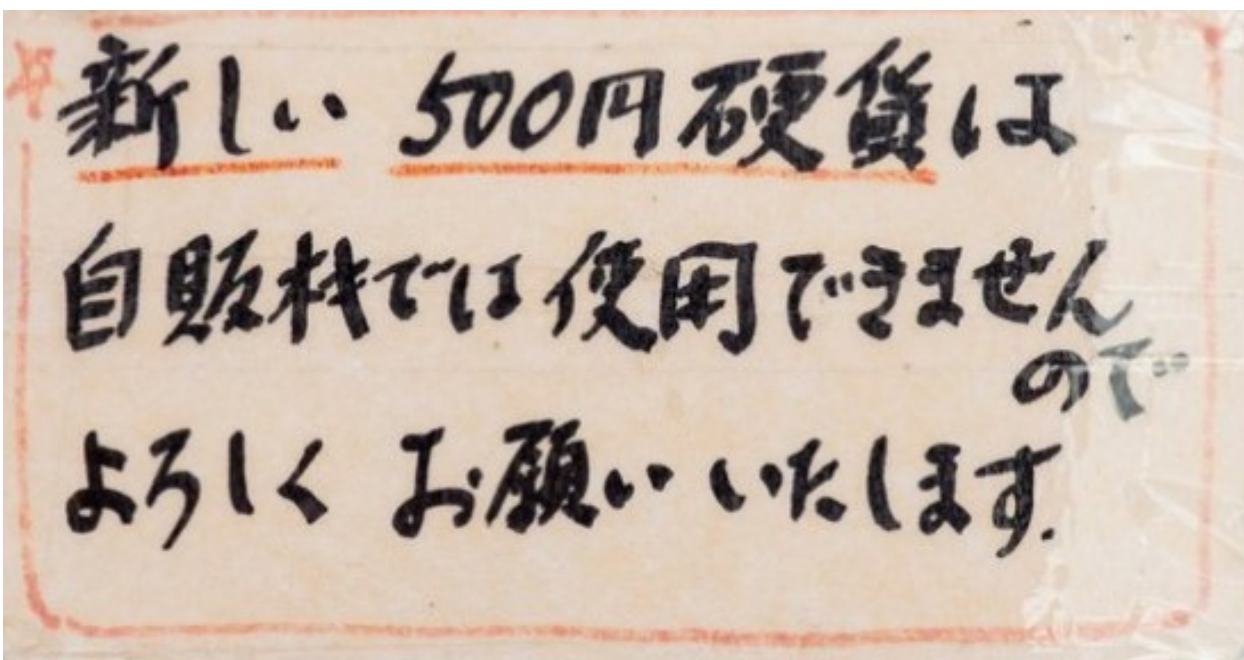 新しい 500円硬貨は
自販機では使用できません
ので
よろしく お願いいたします.